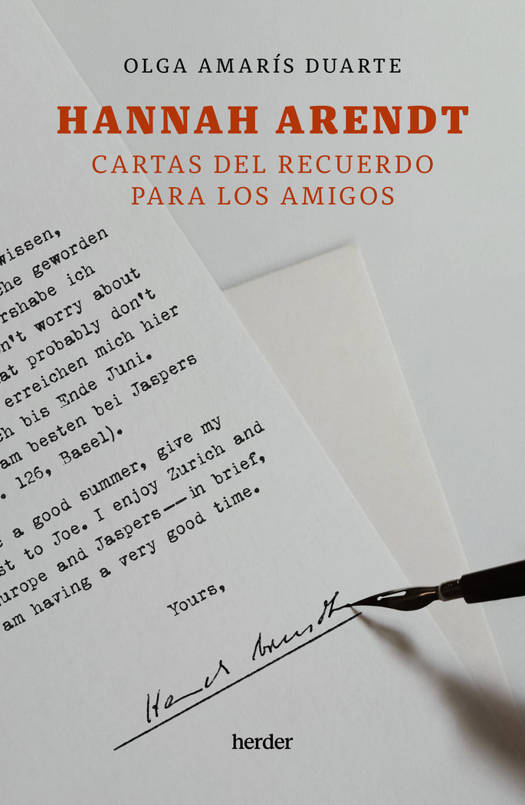 OLGA AMARÍS DUARTE
HANNAH ARENDT
CARTAS DEL RECUERDO
PARA LOS AMIGOS
wissen,
che geworden
rshabe ich
n't worry about
at probably don't
erreichen mich hier
ch bis Ende Juni.
am besten bei Jaspers
. 126, Basel).
e a good summer, give my
st to Joe. I enjoy Zurich and
urope and Jaspers——in brief,
am having a very good time.
Yours,
Hannah Arendt
herder